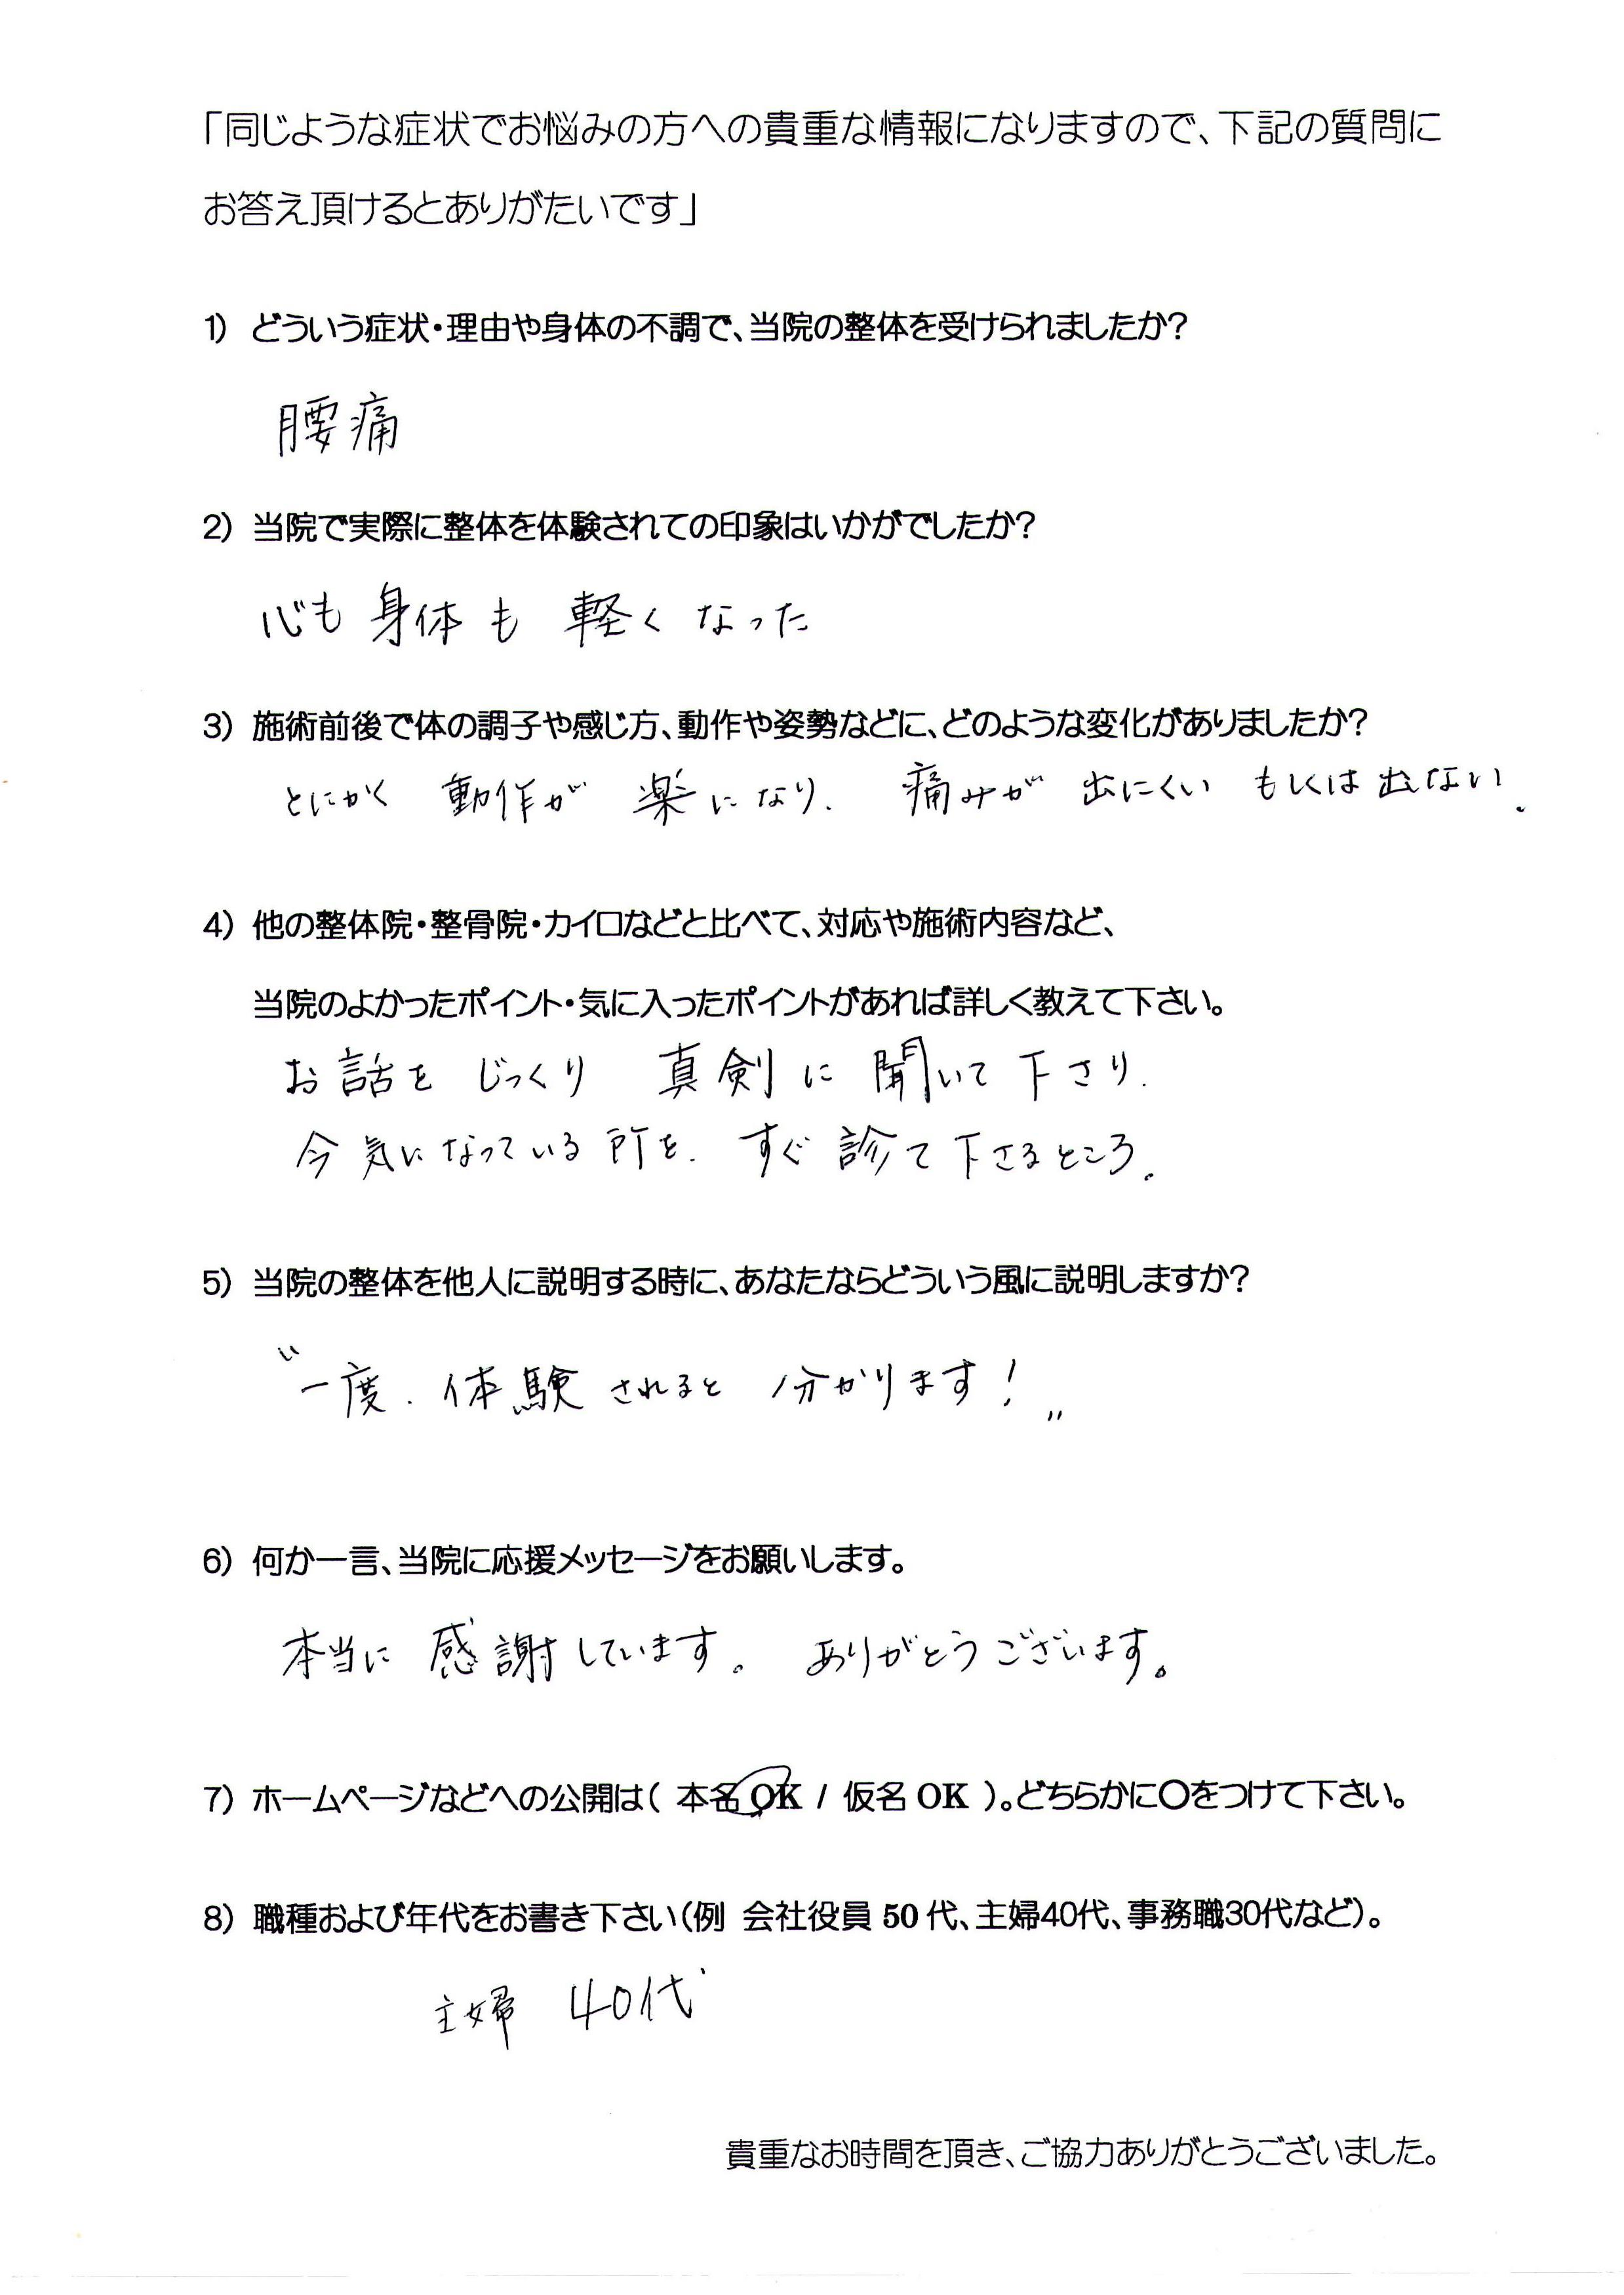 「同じような症状でお悩みの方への貴重な情報になりますので、下記の質問に
お答え頂けるとありがたいです」
1) どういう症状・理由や身体の不調で、当院の整体を受けられましたか?
腰痛
2) 当院で実際に整体を体験されての印象はいかがでしたか?
心も 身体も 軽く なった
3) 施術前後で体の調子や感じ方、動作や姿勢などに、どのような変化がありましたか?
とにかく 動作が 楽になり、 痛みが 出にくい もしくは 出ない。
4) 他の整体院・整骨院・カイロなどと比べて、対応や施術内容など、
当院のよかったポイント・気に入ったポイントがあれば詳しく教えて下さい。
お話を じっくり 真剣に 聞いて 下さり、
今 気になっている 所を、 すぐ 診て 下さるところ。
5) 当院の整体を他人に説明する時に、あなたならどういう風に説明しますか?
〝一度、体験されると 分かります!〟
6) 何か一言、当院に応援メッセージをお願いします。
本当に 感謝しています。 ありがとうございます。
7) ホームページなどへの公開は( 本名OK / 仮名OK )。どちらかに〇をつけて下さい。
8) 職種および年代をお書き下さい(例 会社役員 50代、主婦40代、事務職30代など)。
主婦 40代
貴重なお時間を頂き、ご協力ありがとうございました。